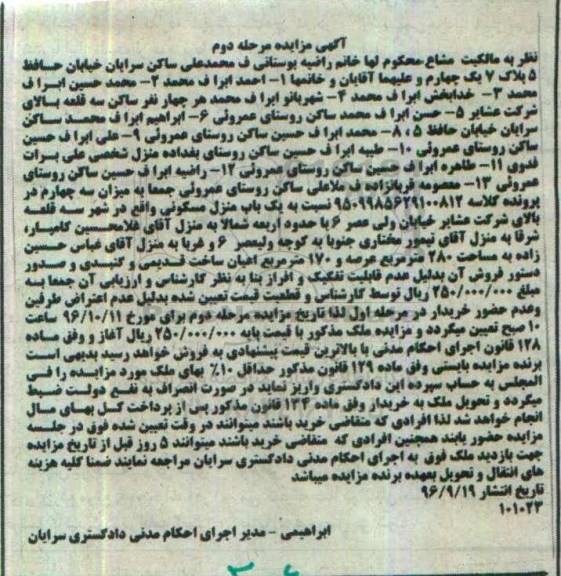 آگهی مزایده مرحله دوم
نظر به مالکیت مشاع محکوم لها خانم راضیه بوستانی ف محمدعلی ساکن سرایان خیابان حافظ
۵ پلاک ۷ یک چهارم و علیهما آقایان و خانمها ۱- احمد ابرا ف محمد ۲- محمد حسین ابرا ف
محمد ۳- خدابخش ابرا ف محمد ۴- شهربانو ابرا ف محمد هر چهار نفر ساکن سه قلعه بالای
شرکت عشایر ۵- حسن ابرا ف محمد ساکن روستای عمروئی ۶- ابراهیم ابرا ف محمد ساکن
سرایان خیابان حافظ ۵ ۸- محمد ابرا ف حسین ساکن روستای عمروئی ۹- علی ابرا ف حسین
ساکن روستای عمروئی ۱۰- طیبه ابرا ف حسین ساکن روستای بغداده منزل شخصی علی برات
فدوی ۱۱- طاهره ابرا ف حسین ساکن روستای عمروئی ۱۲- راضیه ابرا ف حسین ساکن روستای
عمروئی ۱۳- معصومه قربانزاده ف ملاعلی ساکن روستای عمروئی جمعا به میزان سه چهارم در
پرونده کلاسه ۹۵۰۹۹۸۵۶۲۹۱۰۰۸۱۲ نسبت به یک باب منزل مسکونی واقع در شهر سه قلعه
بالای شرکت عشایر خیابان ولی عصر ۶ با حدود اربعه شمالا به منزل آقای غلامحسین کامیار،
شرقا به منزل آقای تیمور مختاری جنوبا به کوچه ولیعصر ۶ و غربا به منزل آقای عباس حسین
زاده به مساحت ۲۸۰ مترمربع عرصه و ۱۷۰ مترمربع اعیان ساخت قدیمی و گنبدی و صدور
دستور فروش آن بدلیل عدم قابلیت تفکیک و افراز بنا به نظر کارشناس و ارزیابی آن جمعا به
مبلغ ۲۵۰/۰۰۰/۰۰۰ ریال توسط کارشناس و قطعیت قیمت تعیین شده بدلیل عدم اعتراض طرفین
وعدم حضور خریدار در مرحله اول لذا تاریخ مزایده مرحله دوم برای مورخ ۹۶/۱۰/۱۱ ساعت
۱۰ صبح تعیین میگردد و مزایده ملک مذکور با قیمت پایه ۲۵۰/۰۰۰/۰۰۰ ریال آغاز و وفق ماده
۱۲۸ قانون اجرای احکام مدنی با بالاترین قیمت پیشنهادی به فروش خواهد رسید بدیهی است
برنده مزایده بایستی وفق ماده ۱۲۹ قانون مذکور حداقل ۱۰٪ بهای ملک مورد مزایده را فی
المجلس به حساب سپرده این دادگستری واریز نماید در صورت انصراف به نفع دولت ضبط
میگردد و تحویل ملک به خریدار وفق ماده ۱۳۴ قانون مذکور پس از پرداخت کل بهای مال
انجام خواهد شد لذا افرادی که متقاضی خرید باشند میتوانند در وقت تعیین شده فوق در جلسه
مزایده حضور یابند همچنین افرادی که متقاضی خرید باشند میتوانند ۵ روز قبل از تاریخ مزایده
جهت بازدید ملک فوق به اجرای احکام مدنی دادگستری سرایان مراجعه نمایند ضمنا کلیه هزینه
های انتقال و تحویل بعهده برنده مزایده میباشد
تاریخ انتشار ۹۶/۹/۱۹
۱۰۱۰۲۳
ابراهیمی - مدیر اجرای احکام مدنی دادگستری سرایان